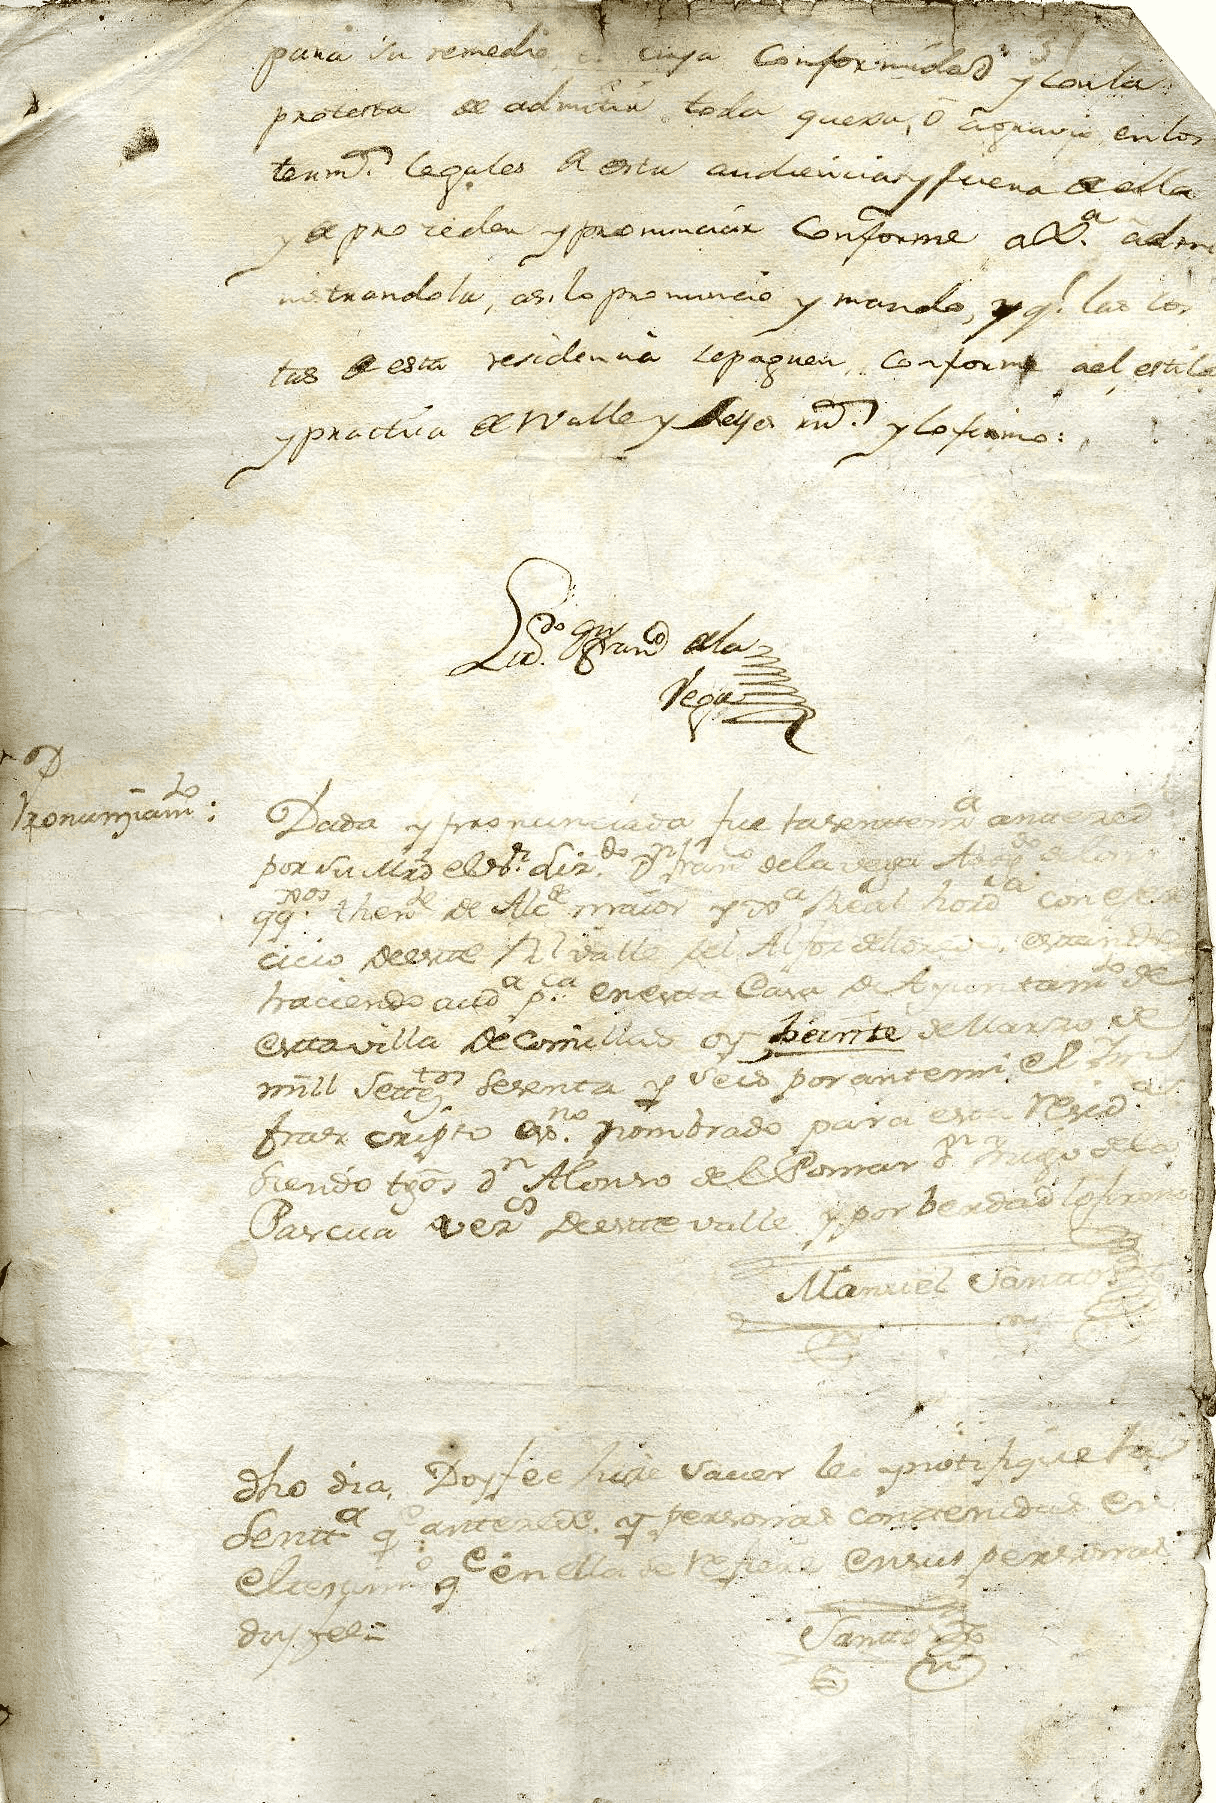 31
para su remedio, en cuya Conformidad y con la
protesta de admitir toda quexa, ô agravio en los
term.s legales de esta audiencia, y fuera de ella
y de proceder y pronunciar Conforme a D.a admi
nistrandola, asi lo pronuncio y mando, y q.e las cos
tas de esta residencia se paguen, conforme ael estilo
y practica de Valle y Leyes r.s y lo firmo:
Liz.do Dn Fran.co de la
Vega
Pronunziam.to:
Dada y pronunciada fue la sentencia antezed.
por su Mrd el S.r Liz.do Dn Fran.co de la Vega Abog.do de los
R.s then.te de Alc.e maior y de la Real hord.a con exer
cicio de este Rl valle del Alfoz de Lloredo, estando
haciendo aud.a p.ca en esta Casa de Ayuntam.to de
esta villa de Comillas oy beinte de Marzo de
mill sette.tos sesenta y seis por ante mi el In
fraescripto es.no nombrado para esta Resid.a
siendo tgos dn Alonso de el Pomar dn Iñigo de la
Pascua vez.s de este valle y por berdad lo firmo
Manuel Santos
dho dia, Doy fee hize saver lei y notifique la
Sentt.a q.e antezede. y personas contenidas en
el q.e en ella se refiere en sus personas
doy fee=
Santos